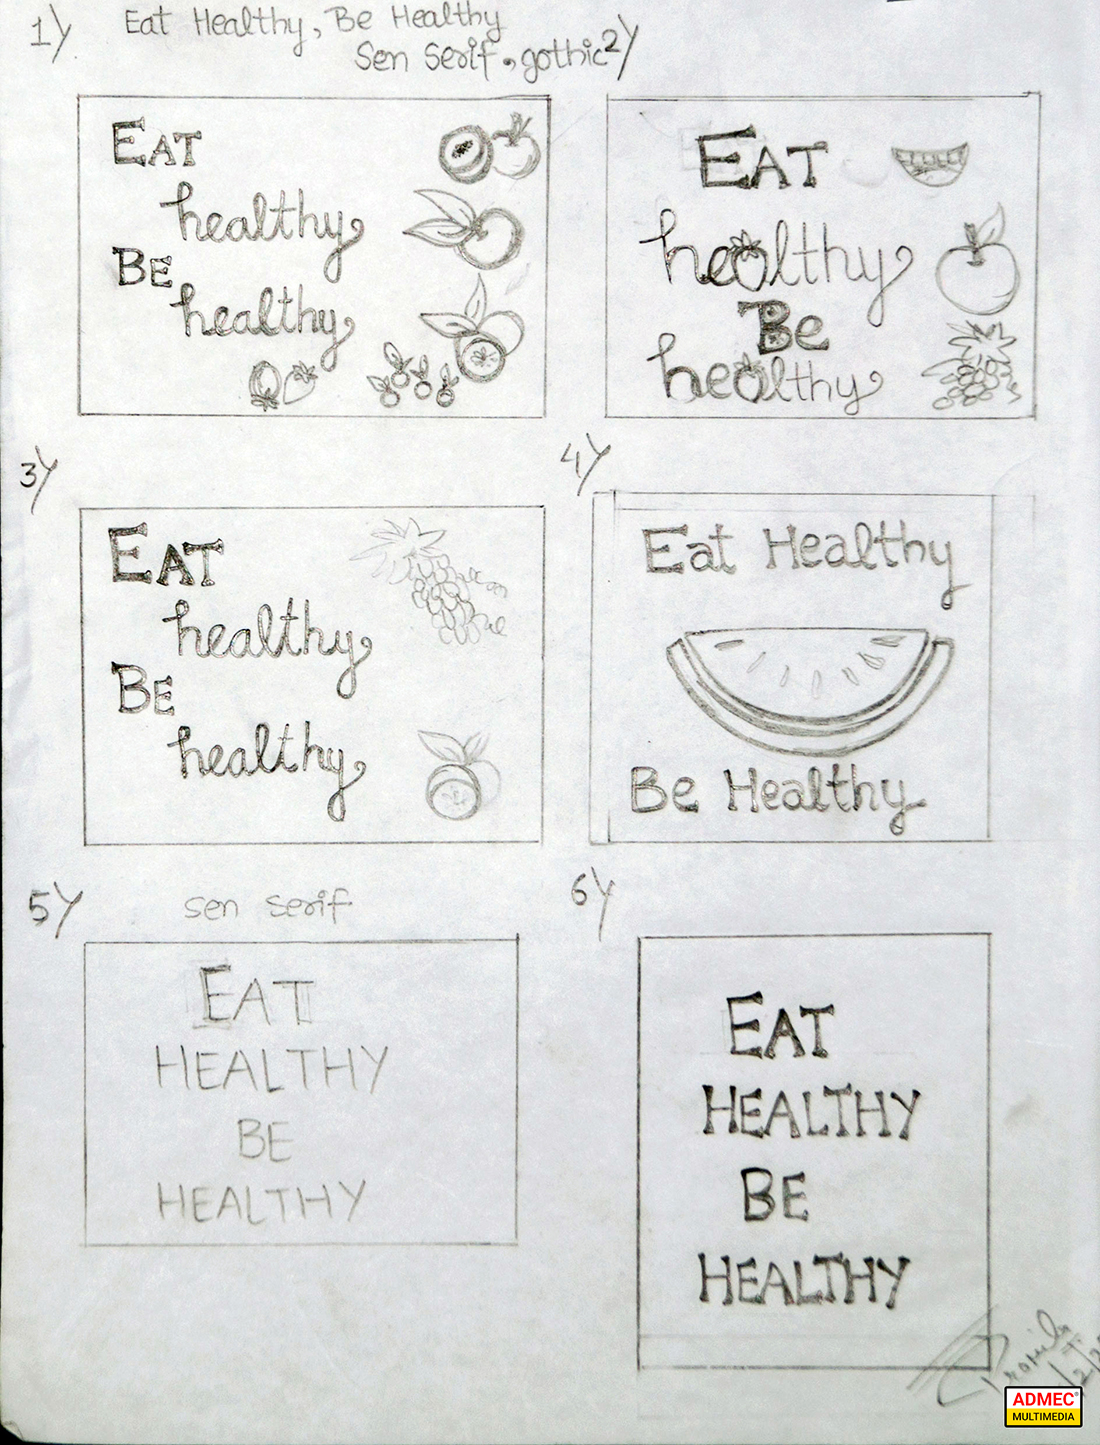 1) Eat Healthy, Be Healthy
Sen Serif, gothic
2)
EAT
healthy
BE
healthy
EAT
healthy
Be
healthy
3)
4)
EAT
healthy
BE
healthy
Eat Healthy
Be Healthy
5)
6)
sen serif
EAT
HEALTHY
BE
HEALTHY
EAT
HEALTHY
BE
HEALTHY
ADMEC
MULTIMEDIA